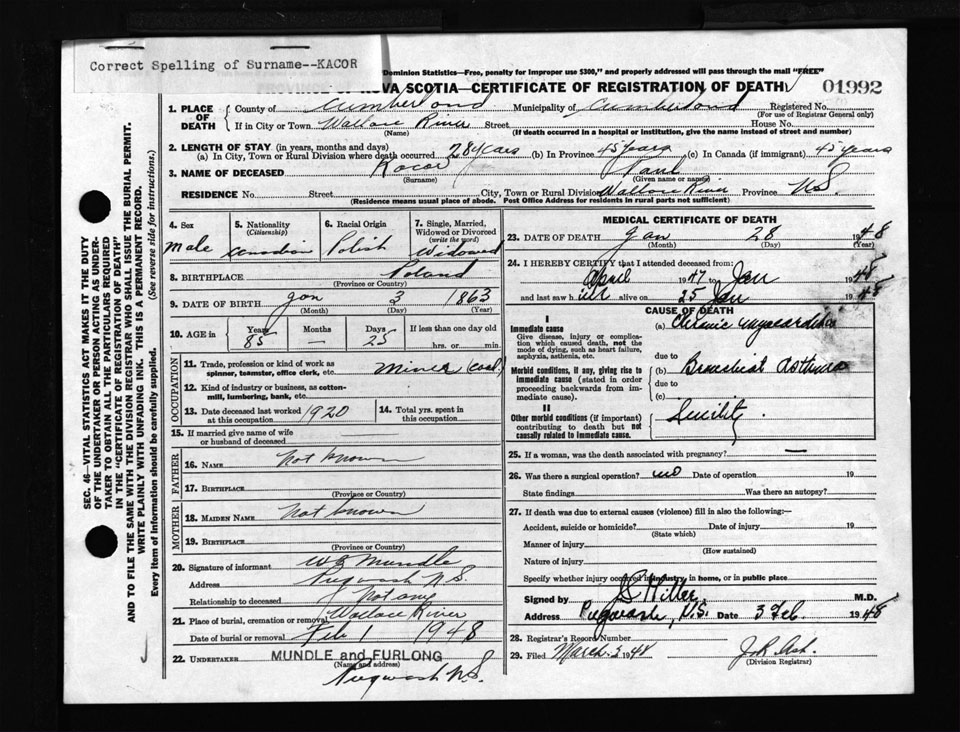 Correct Spelling of Surname--KACOR
Dominion Statistics—Free, penalty for improper use $300," and properly addressed will pass through the mail "FREE"
PROVINCE OF NOVA SCOTIA—CERTIFICATE OF REGISTRATION OF DEATH
01992
1. PLACE OF DEATH
County of Cumberland Municipality of Cumberland Registered No.
(For use of Registrar General only)
If in City or Town Wallace River Street House No.
(Name) (If death occurred in a hospital or institution, give the name instead of street and number)
2. LENGTH OF STAY (in years, months and days)
(a) In City, Town or Rural Division where death occurred 28 years (b) In Province 45 years (c) In Canada (if immigrant) 45 years
3. NAME OF DECEASED Kocor Paul
(Surname) (Given name or names)
RESIDENCE No. Street City, Town or Rural Division Wallace River Province N.S.
(Residence means usual place of abode. Post Office Address for residents in rural parts not sufficient)
4. Sex Male
5. Nationality (Citizenship) Canadian
6. Racial Origin Polish
7. Single, Married, Widowed or Divorced (write the word) Widowed
8. BIRTHPLACE Poland
(Province or Country)
9. DATE OF BIRTH Jan 3 1863
(Month) (Day) (Year)
10. AGE in Years 85 Months — Days 25 If less than one day old hrs. or min.
OCCUPATION
11. Trade, profession or kind of work as spinner, teamster, office clerk, etc. Miner (coal)
12. Kind of industry or business, as cotton-mill, lumbering, bank, etc.
13. Date deceased last worked at this occupation 1920
14. Total yrs. spent in this occupation
15. If married give name of wife or husband of deceased
FATHER
16. NAME Not known
17. BIRTHPLACE
(Province or Country)
MOTHER
18. MAIDEN NAME Not known
19. BIRTHPLACE
(Province or Country)
20. Signature of informant W E Mundle
Address Pugwash N.S.
Relationship to deceased Not any
21. Place of burial, cremation or removal Wallace River
Date of burial or removal Feb 1 1948
22. UNDERTAKER MUNDLE and FURLONG
(Name and address)
Pugwash N.S.
MEDICAL CERTIFICATE OF DEATH
23. DATE OF DEATH Jan 28 1948
(Month) (Day) (Year)
24. I HEREBY CERTIFY that I attended deceased from:
April 1947 to Jan 1948
and last saw him alive on 25 Jan 1948
CAUSE OF DEATH
I
Immediate cause
Give disease, injury or complication which caused death, not the mode of dying, such as heart failure, asphyxia, asthenia, etc.
(a) Chronic myocarditis
due to
Morbid conditions, if any, giving rise to immediate cause (stated in order proceeding backwards from immediate cause).
(b) Bronchial Asthma
due to
(c)
II
Other morbid conditions (if important) contributing to death but not causally related to immediate cause.
Senility
25. If a woman, was the death associated with pregnancy? —
26. Was there a surgical operation? no Date of operation 19
State findings Was there an autopsy?
27. If death was due to external causes (violence) fill in also the following:
Accident, suicide or homicide? Date of injury 19
(State which)
Manner of injury
(How sustained)
Nature of injury
Specify whether injury occurred in industry, in home, or in public place
Signed by M.D.
Address Pugwash, N.S. Date 3 Feb. 1948
28. Registrar's Record Number
29. Filed March 3 1948
(Division Registrar)
SEC. 46—VITAL STATISTICS ACT MAKES IT THE DUTY
OF THE UNDERTAKER OR PERSON ACTING AS UNDER-
TAKER TO OBTAIN ALL THE PARTICULARS REQUIRED
IN THE "CERTIFICATE OF REGISTRATION OF DEATH"
AND TO FILE THE SAME WITH THE DIVISION REGISTRAR WHO SHALL ISSUE THE BURIAL PERMIT.
WRITE PLAINLY WITH UNFADING INK. THIS IS A PERMANENT RECORD.
Every item of information should be carefully supplied. (See reverse side for instructions.)